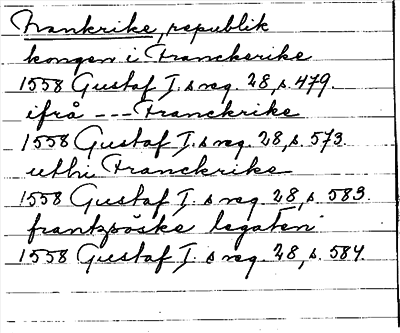 Frankrike, republik
kongen i Franckerike
1558 Gustaf I.s reg. 28, s. 479.
ifrå --- Franckrike
1558 Gustaf I.s reg. 28, s. 573.
uthi Franckrike
1558 Gustaf I.s reg. 28, s. 583.
frantzöske legaten
1558 Gustaf I.s reg. 28, s. 584.